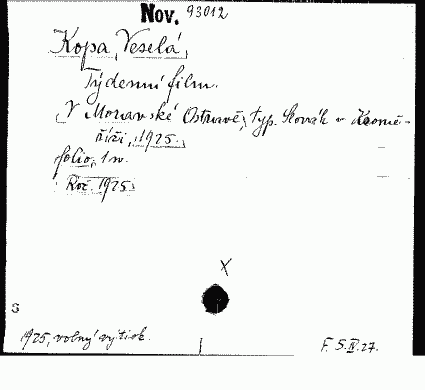 Nov. 93012
Kopa, Veselá,
Týdenní film.
V Moravské Ostravě, typ. Slovák v Kromě-
říži, 1925.
folio, 1 sv.
Roč. 1925
X
S
1925, volný výtisk.
F. 5.IV.27.